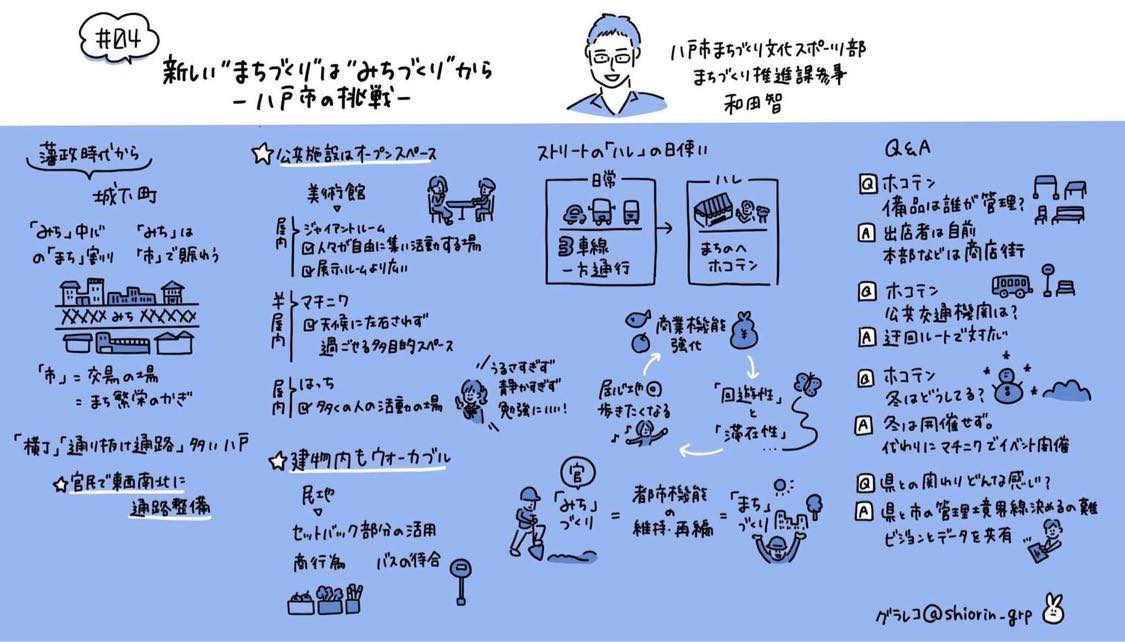 #04
新しい"まちづくり"は"みちづくり"から
－八戸市の挑戦－
八戸市まちづくり文化スポーツ部
まちづくり推進課参事
和田智
藩政時代から
城下町
「みち」中心
の「まち」割り
「みち」は
「市」で賑わう
みち
「市」=交易の場
=まち繁栄のかぎ
「横丁」「通り抜け通路」多い八戸
☆官民で東西南北に
通路整備
☆公共施設はオープンスペース
美術館
屋内
ジャイアントルーム
☑人々が自由に集い活動する場
☑展示ルームより広い
半屋内
マチニワ
☑天候に左右されず
過ごせる多目的スペース
屋内
はっち
☑多くの人の活動の場
うるさすぎず
静かすぎず
勉強にいい!
☆建物内もウォーカブル
民地
セットバック部分の活用
商行為
バスの待合
ストリートの「ハレ」の日使い
日常
3車線
一方通行
ハレ
まちのへ
ホコテン
商業機能
強化
¥
「回遊性」
と
「滞在性」
居心地◎
歩きたくなる
官
「みち」
づくり
=
都市機能
の
維持・再編
=
「まち」
づくり
Q&A
Q ホコテン
備品は誰が管理?
A 出店者は自前
本部などは商店街
Q ホコテン
公共交通機関は?
A 迂回ルートで対応
Q ホコテン
冬はどうしてる?
A 冬は開催せず。
代わりにマチニワでイベント開催
Q 県との関わりどんな感じ?
A 県と市の管理境界線決めるの難
ビジョンとデータを共有…
グラレコ@shiorin_grp